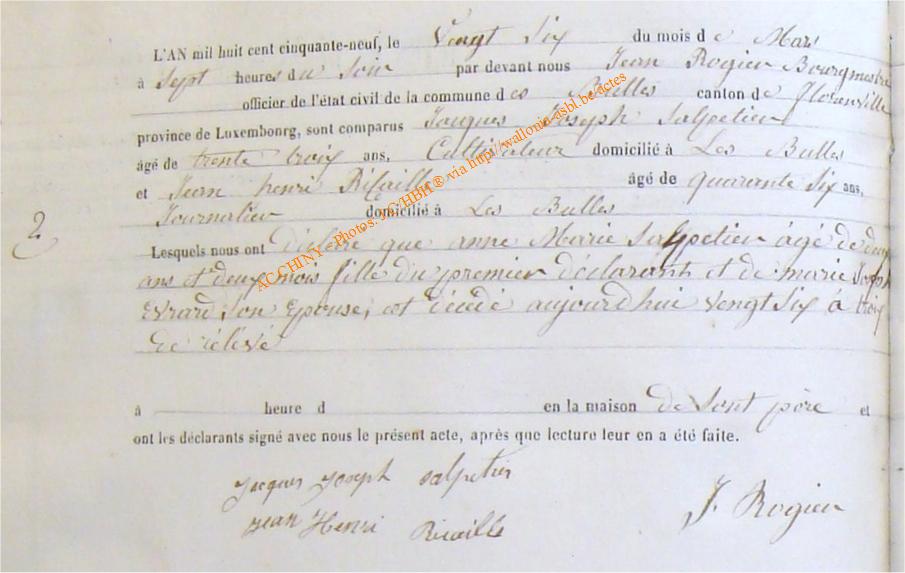 L'AN mil huit cent cinquante-neuf, le Vengt Six du mois de Mars
à Sept heures du Soir par devant nous Jean Rogier Bourgmestre
officier de l'état civil de la commune des Bulles canton de Florenville
province de Luxembourg, sont comparus Jacques Joseph Salpetier
âgé de trente troix ans, Cultivateur domicilié à Les Bulles
et Jean henri Ricaille âgé de quarante Six ans,
Journalier domicilié à Les Bulles
2
Lesquels nous ont déclaré que anne Marie Salpetier âgé de deux
ans et deux mois fille du premier déclarant et de marie Joseph
Evrard, Son Epouse, est decidé aujourdhui vengt Six à troix
de rélévé
à heure d en la maison de Sont père et
ont les déclarants signé avec nous le présent acte, après que lecture leur en a été faite.
Jacques Joseph Salpetier
Jean Henri Ricaille
J. Rogier
AC CHINY - Photos: JG/HBH® via http://wallonia-asbl.be/actes